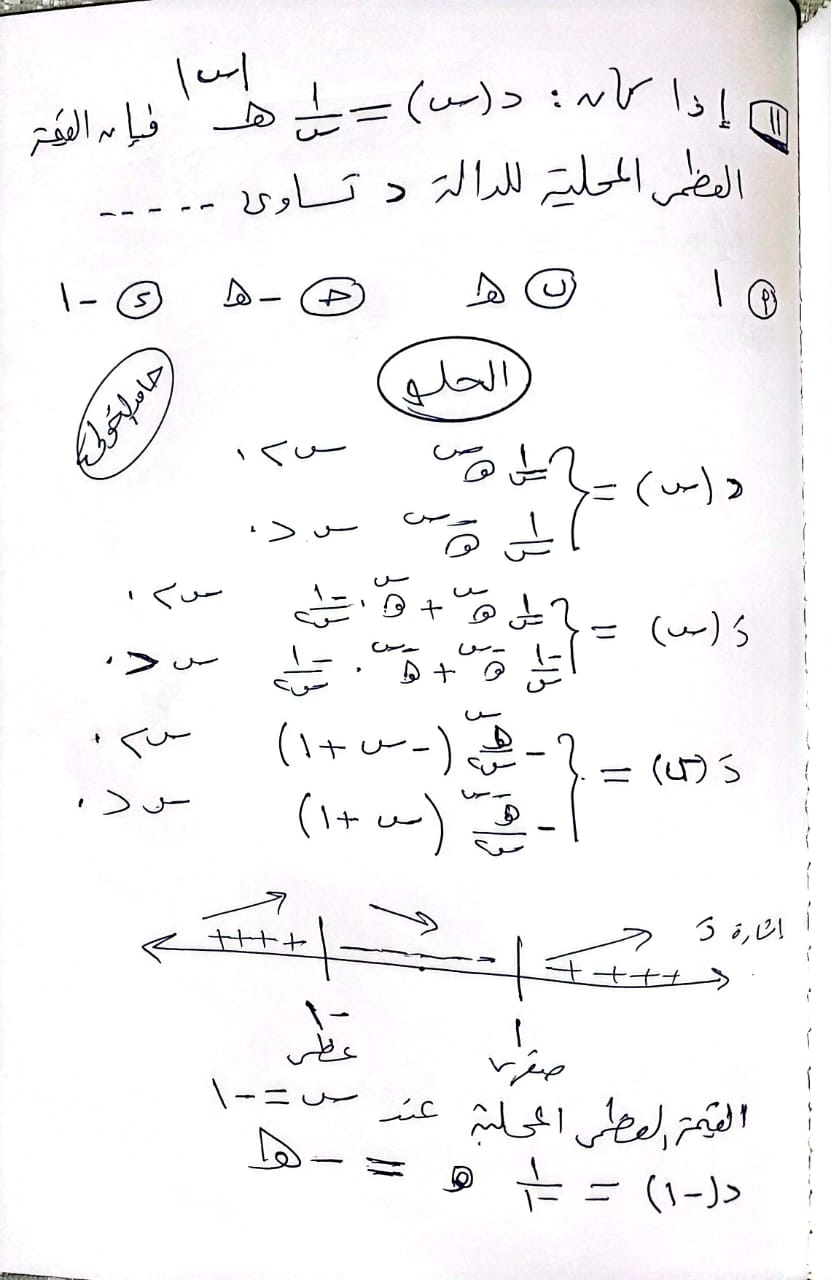 ١١ إذا كان : د(س) = ١/س هـ^|س| فإن القيمة
العظمى المحلية للدالة د تساوى -----
أ ١ ب هـ ج -هـ د -١
الحلو
د(س) = { ١/س هـ^س س > ٠
١/س هـ^-س س < ٠
دَ(س) = { ١/س هـ^س + هـ^س . -١/س٢ س > ٠
-١/س هـ^-س + هـ^-س . -١/س٢ س < ٠
دَ(س) = { - هـ^س/س٢ (-س + ١) س > ٠
- هـ^-س/س٢ (س + ١) س < ٠
اشارة دَ
++++ ++++
-١ ١
عظمى صغرى
القيمة العظمى المحلية عند س = -١
د(-١) = ١/-١ هـ = -هـ